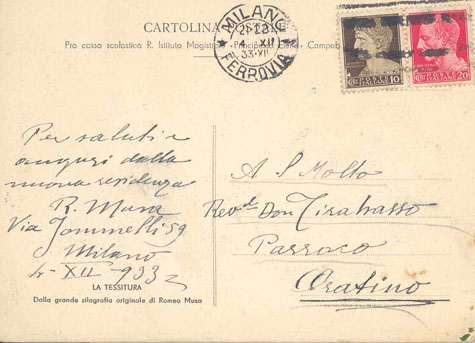 CARTOLINA
Pro cassa scolastica R. Istituto Magistr
MILANO
21-22
4 XII
33-XII
FERROVIA
POSTE ITALIANE
10
20
Per saluti e
auguri dalla
nuova residenza
R. Musa
Via Jommelli 59
Milano
4-XII-933
LA TESSITURA
Dalla grande silografia originale di Romeo Musa
Al Molto
Rev. Don Tirabasso
Parroco
Oratino